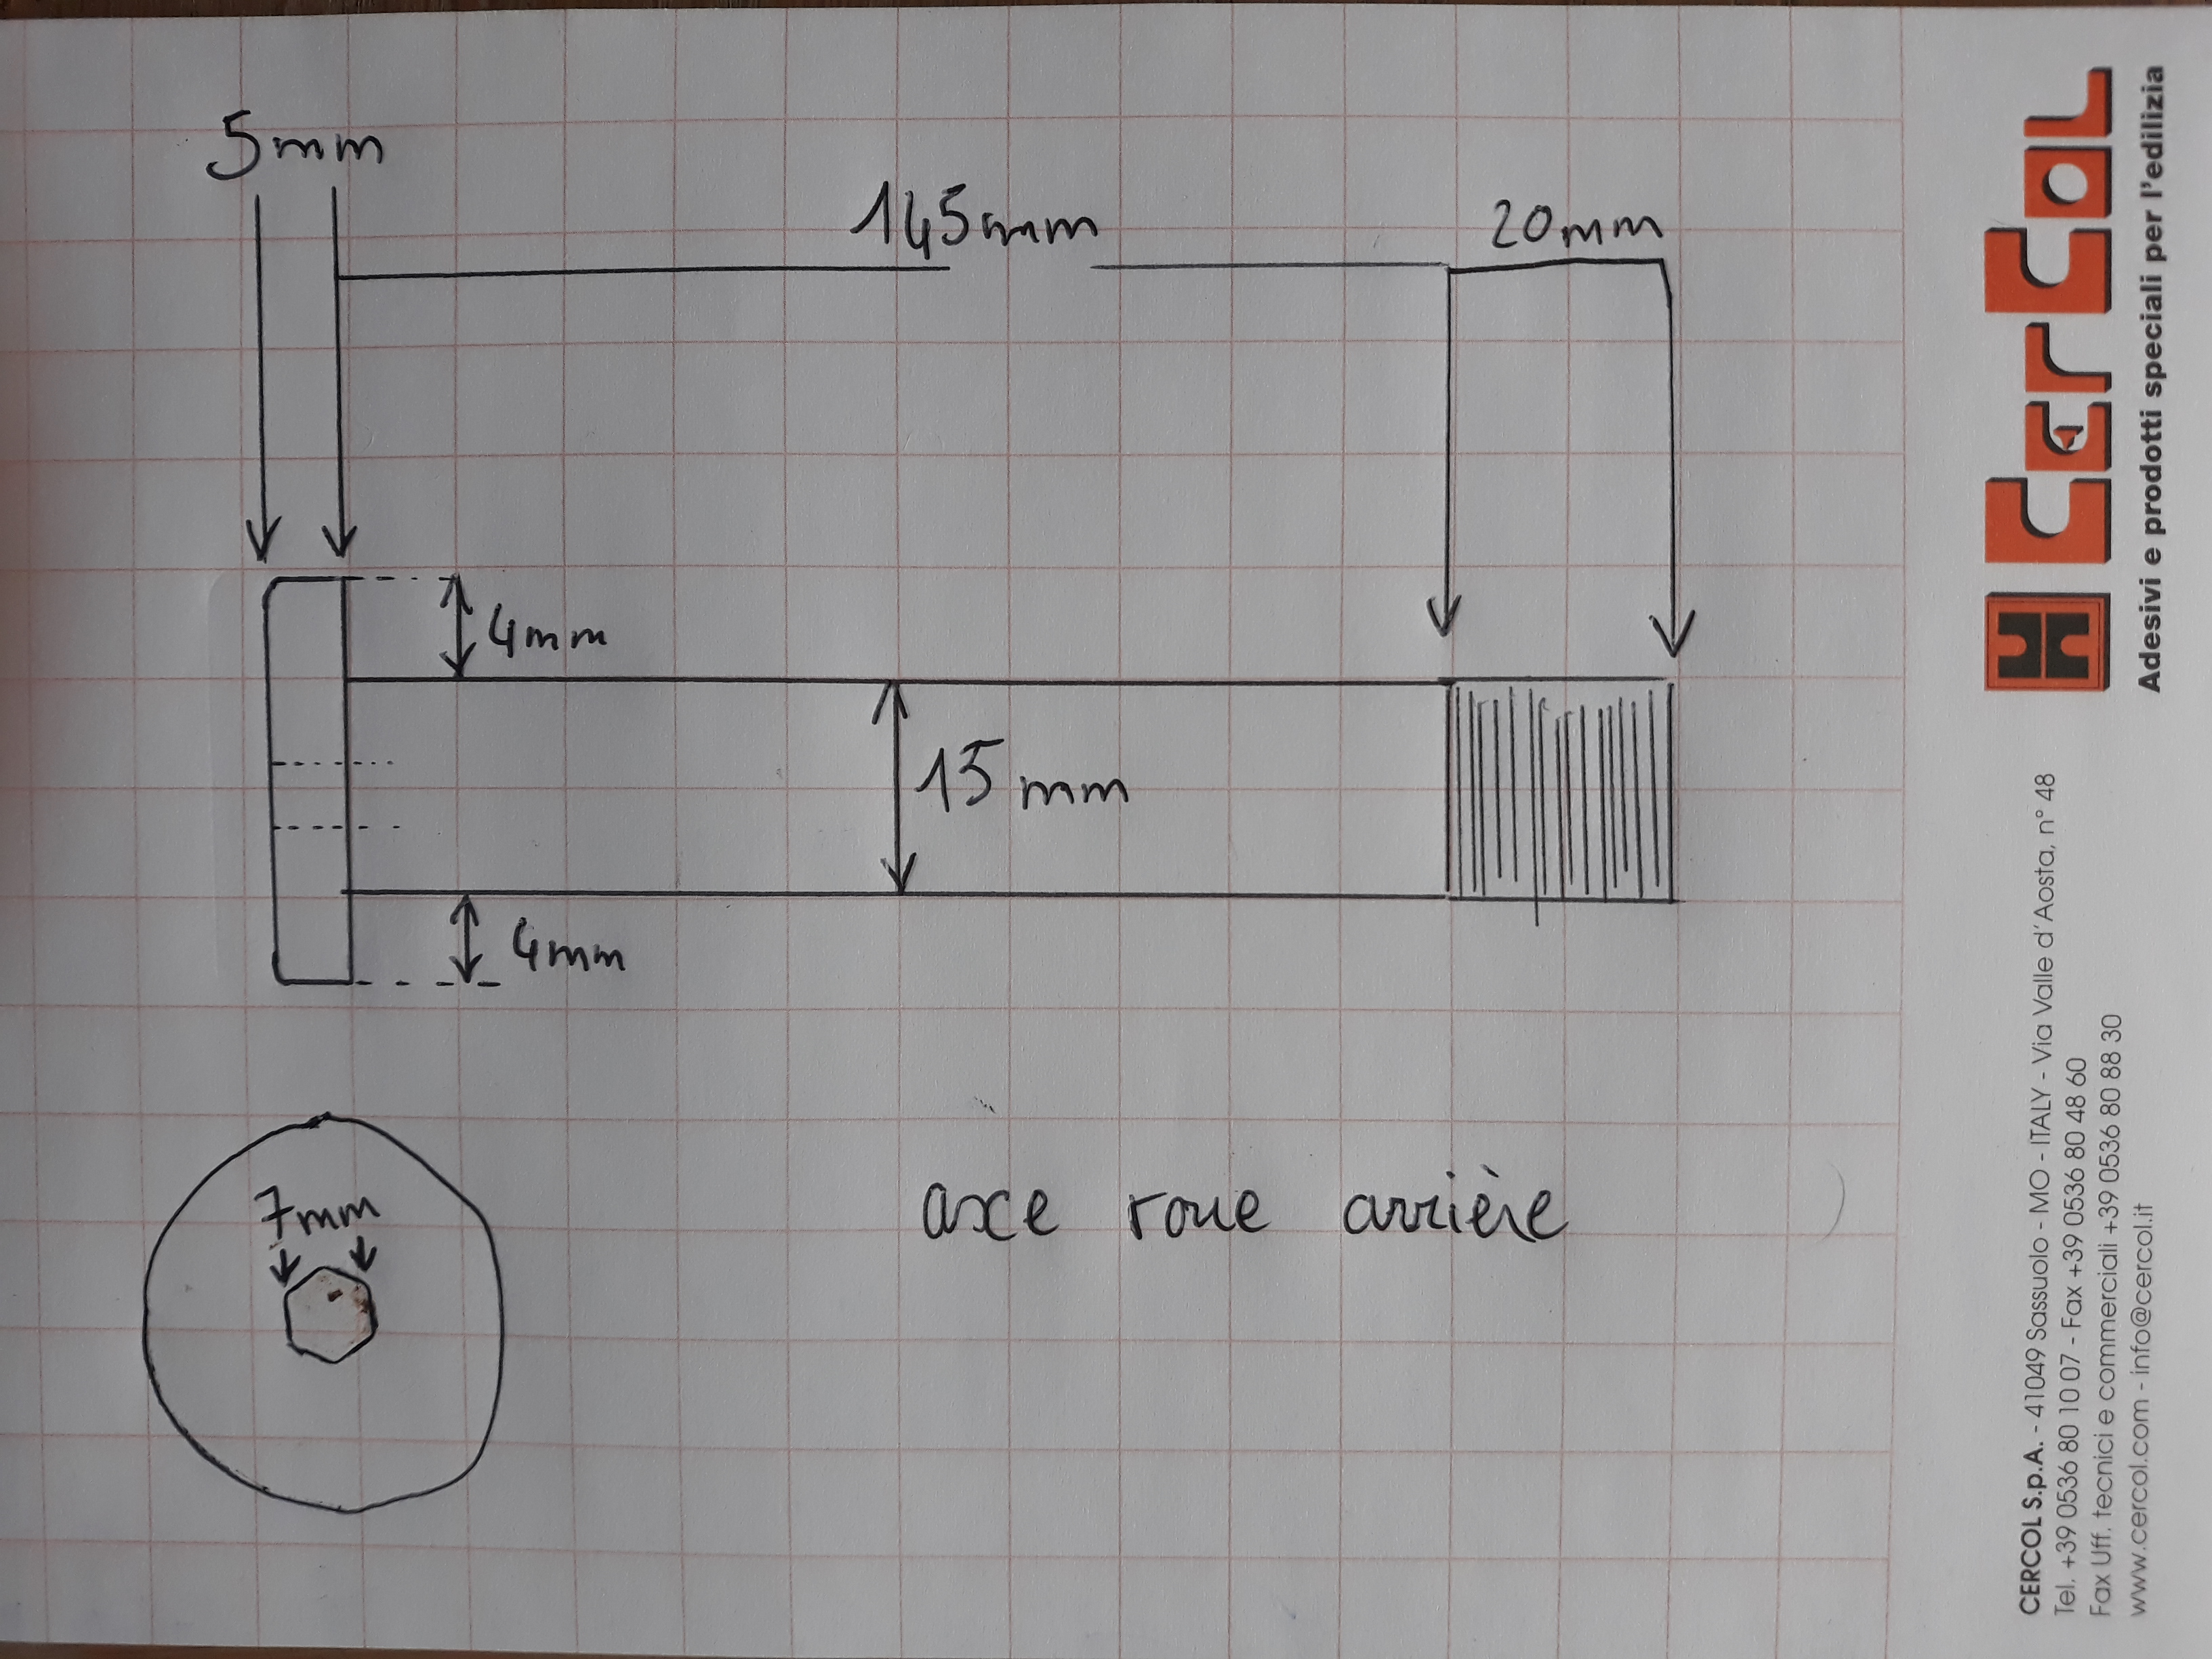 5mm
145mm
20mm
4mm
15mm
4mm
7mm
axe roue arrière
CerCol
Adesivi e prodotti speciali per l'edilizia
CERCOL S.p.A. - 41049 Sassuolo - MO - ITALY - Via Valle d'Aosta, n° 48
Tel. +39 0536 80 10 07 - Fax +39 0536 80 48 60
Fax Uff. tecnici e commerciali +39 0536 80 88 30
www.cercol.com - info@cercol.it